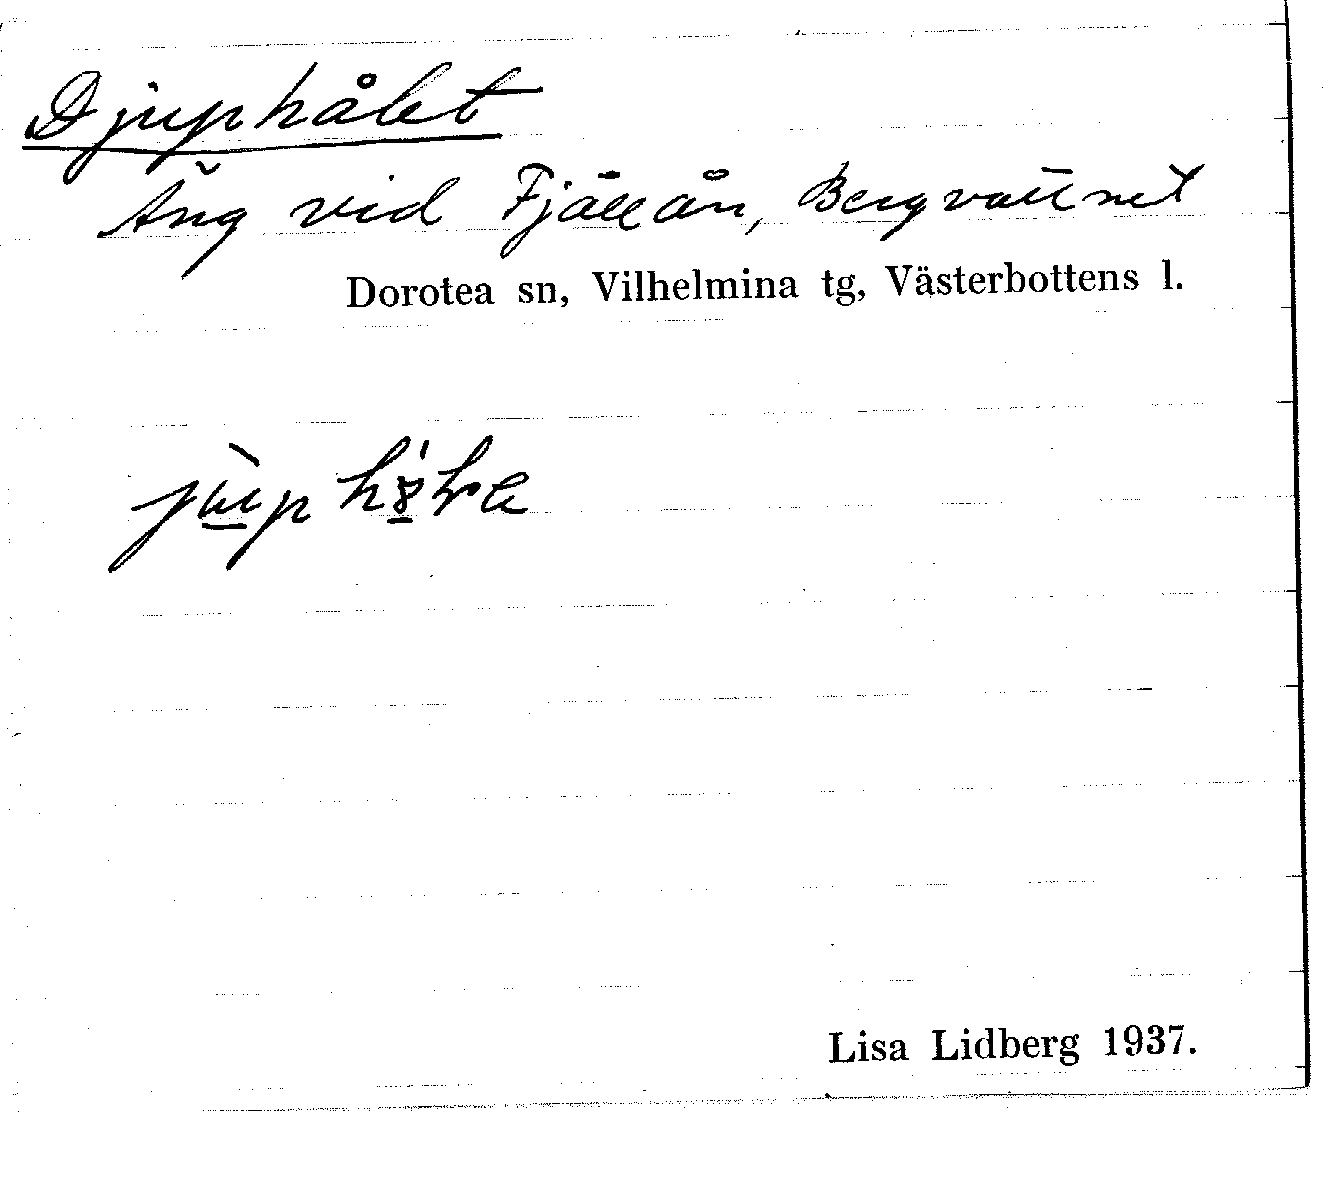 Djuphålet
Äng vid Fjällån, Bergvattnet
Dorotea sn, Vilhelmina tg, Västerbottens l.
Lisa Lidberg 1937.